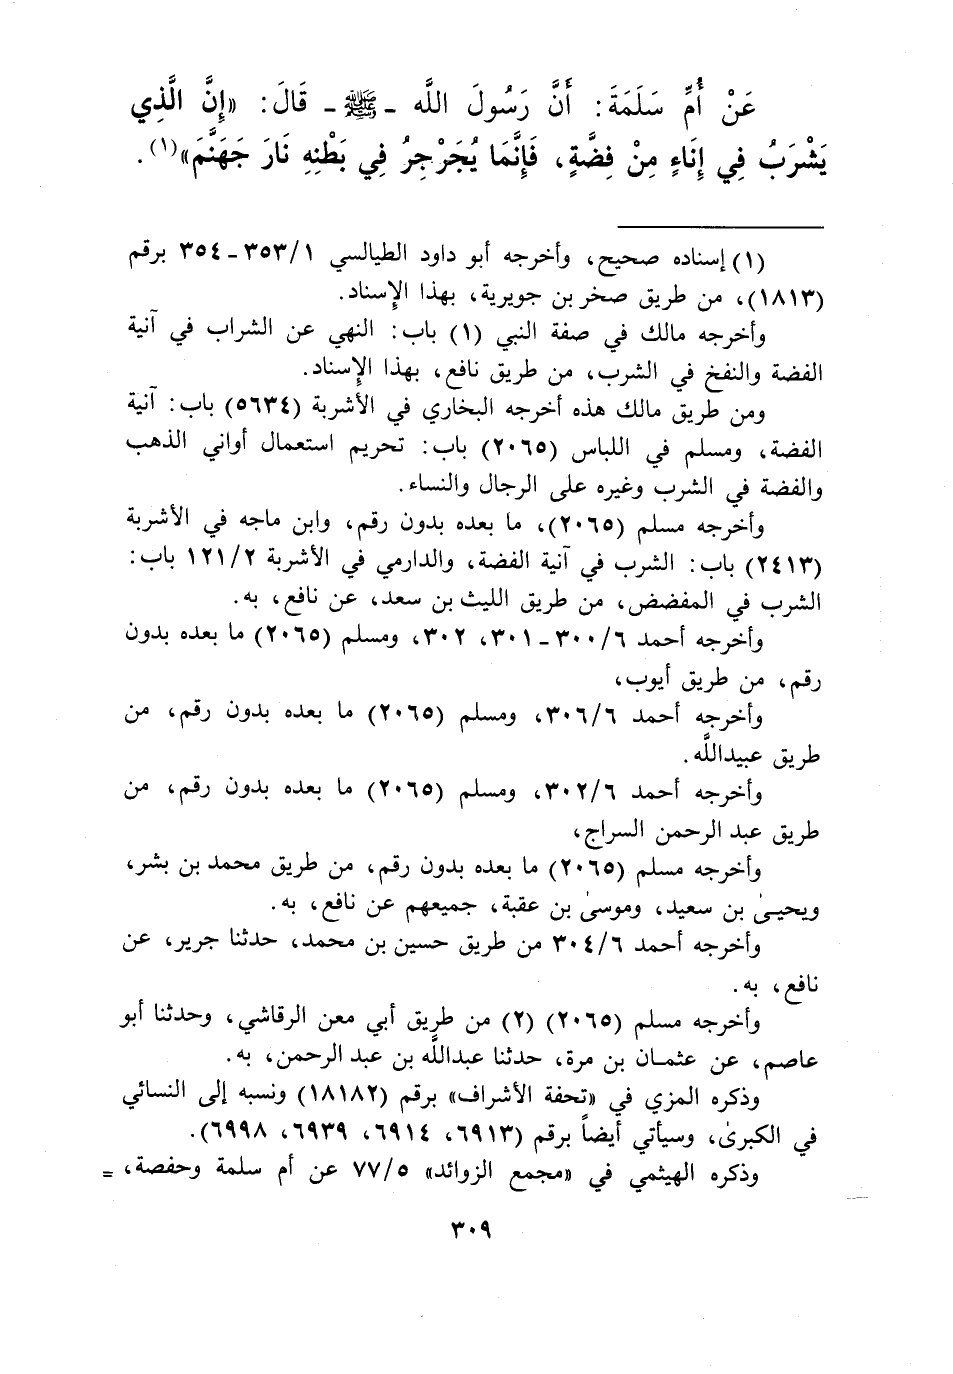 عَنْ أُمِّ سَلَمَةَ: أَنَّ رَسُولَ اللَّه - ﷺ - قَالَ: «إِنَّ الَّذِي
يَشْرَبُ فِي إِنَاءٍ مِنْ فِضَّةٍ، فَإِنَّمَا يُجَرْجِرُ فِي بَطْنِهِ نَارَ جَهَنَّمَ»(١).
(١) إسناده صحيح، وأخرجه أبو داود الطيالسي ٣٥٣/١ - ٣٥٤ برقم
(١٨١٣)، من طريق صخر بن جويرية، بهذا الإسناد.
وأخرجه مالك في صفة النبي (١) باب: النهي عن الشراب في آنية
الفضة والنفخ في الشرب، من طريق نافع، بهذا الإسناد.
ومن طريق مالك هذه أخرجه البخاري في الأشربة (٥٦٣٤) باب: آنية
الفضة، ومسلم في اللباس (٢٠٦٥) باب: تحريم استعمال أواني الذهب
والفضة في الشرب وغيره على الرجال والنساء.
وأخرجه مسلم (٢٠٦٥)، ما بعده بدون رقم، وابن ماجه في الأشربة
(٢٤١٣) باب: الشرب في آنية الفضة، والدارمي في الأشربة ١٢١/٢ باب:
الشرب في المفضض، من طريق الليث بن سعد، عن نافع، به.
وأخرجه أحمد ٣٠٠/٦ - ٣٠١، ٣٠٢، ومسلم (٢٠٦٥) ما بعده بدون
رقم، من طريق أيوب،
وأخرجه أحمد ٣٠٦/٦، ومسلم (٢٠٦٥) ما بعده بدون رقم، من
طريق عبيداللَّه.
وأخرجه أحمد ٣٠٢/٦، ومسلم (٢٠٦٥) ما بعده بدون رقم، من
طريق عبد الرحمن السراج،
وأخرجه مسلم (٢٠٦٥) ما بعده بدون رقم، من طريق محمد بن بشر،
ويحيىٰ بن سعيد، وموسىٰ بن عقبة، جميعهم عن نافع، به.
وأخرجه أحمد ٣٠٤/٦ من طريق حسين بن محمد، حدثنا جرير، عن
نافع، به.
وأخرجه مسلم (٢٠٦٥) (٢) من طريق أبي معن الرقاشي، وحدثنا أبو
عاصم، عن عثمان بن مرة، حدثنا عبداللَّه بن عبد الرحمن، به.
وذكره المزي في «تحفة الأشراف» برقم (١٨١٨٢) ونسبه إلى النسائي
في الكبرىٰ، وسيأتي أيضاً برقم (٦٩١٣، ٦٩١٤، ٦٩٣٩، ٦٩٩٨).
وذكره الهيثمي في «مجمع الزوائد» ٧٧/٥ عن أم سلمة وحفصة، =
٣٠٩